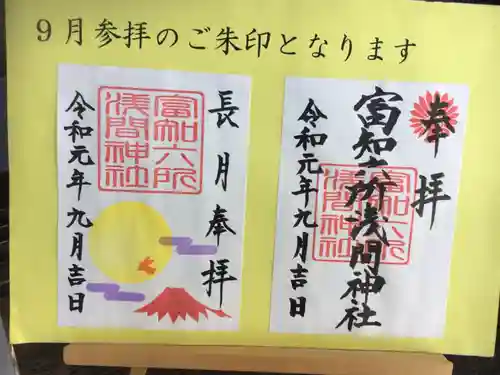 9月参拝のご朱印となります
奉拝
富知六所浅間神社
富知六所
浅間神社
令和元年九月吉日
長月奉拝
富知六所
浅間神社
令和元年九月吉日